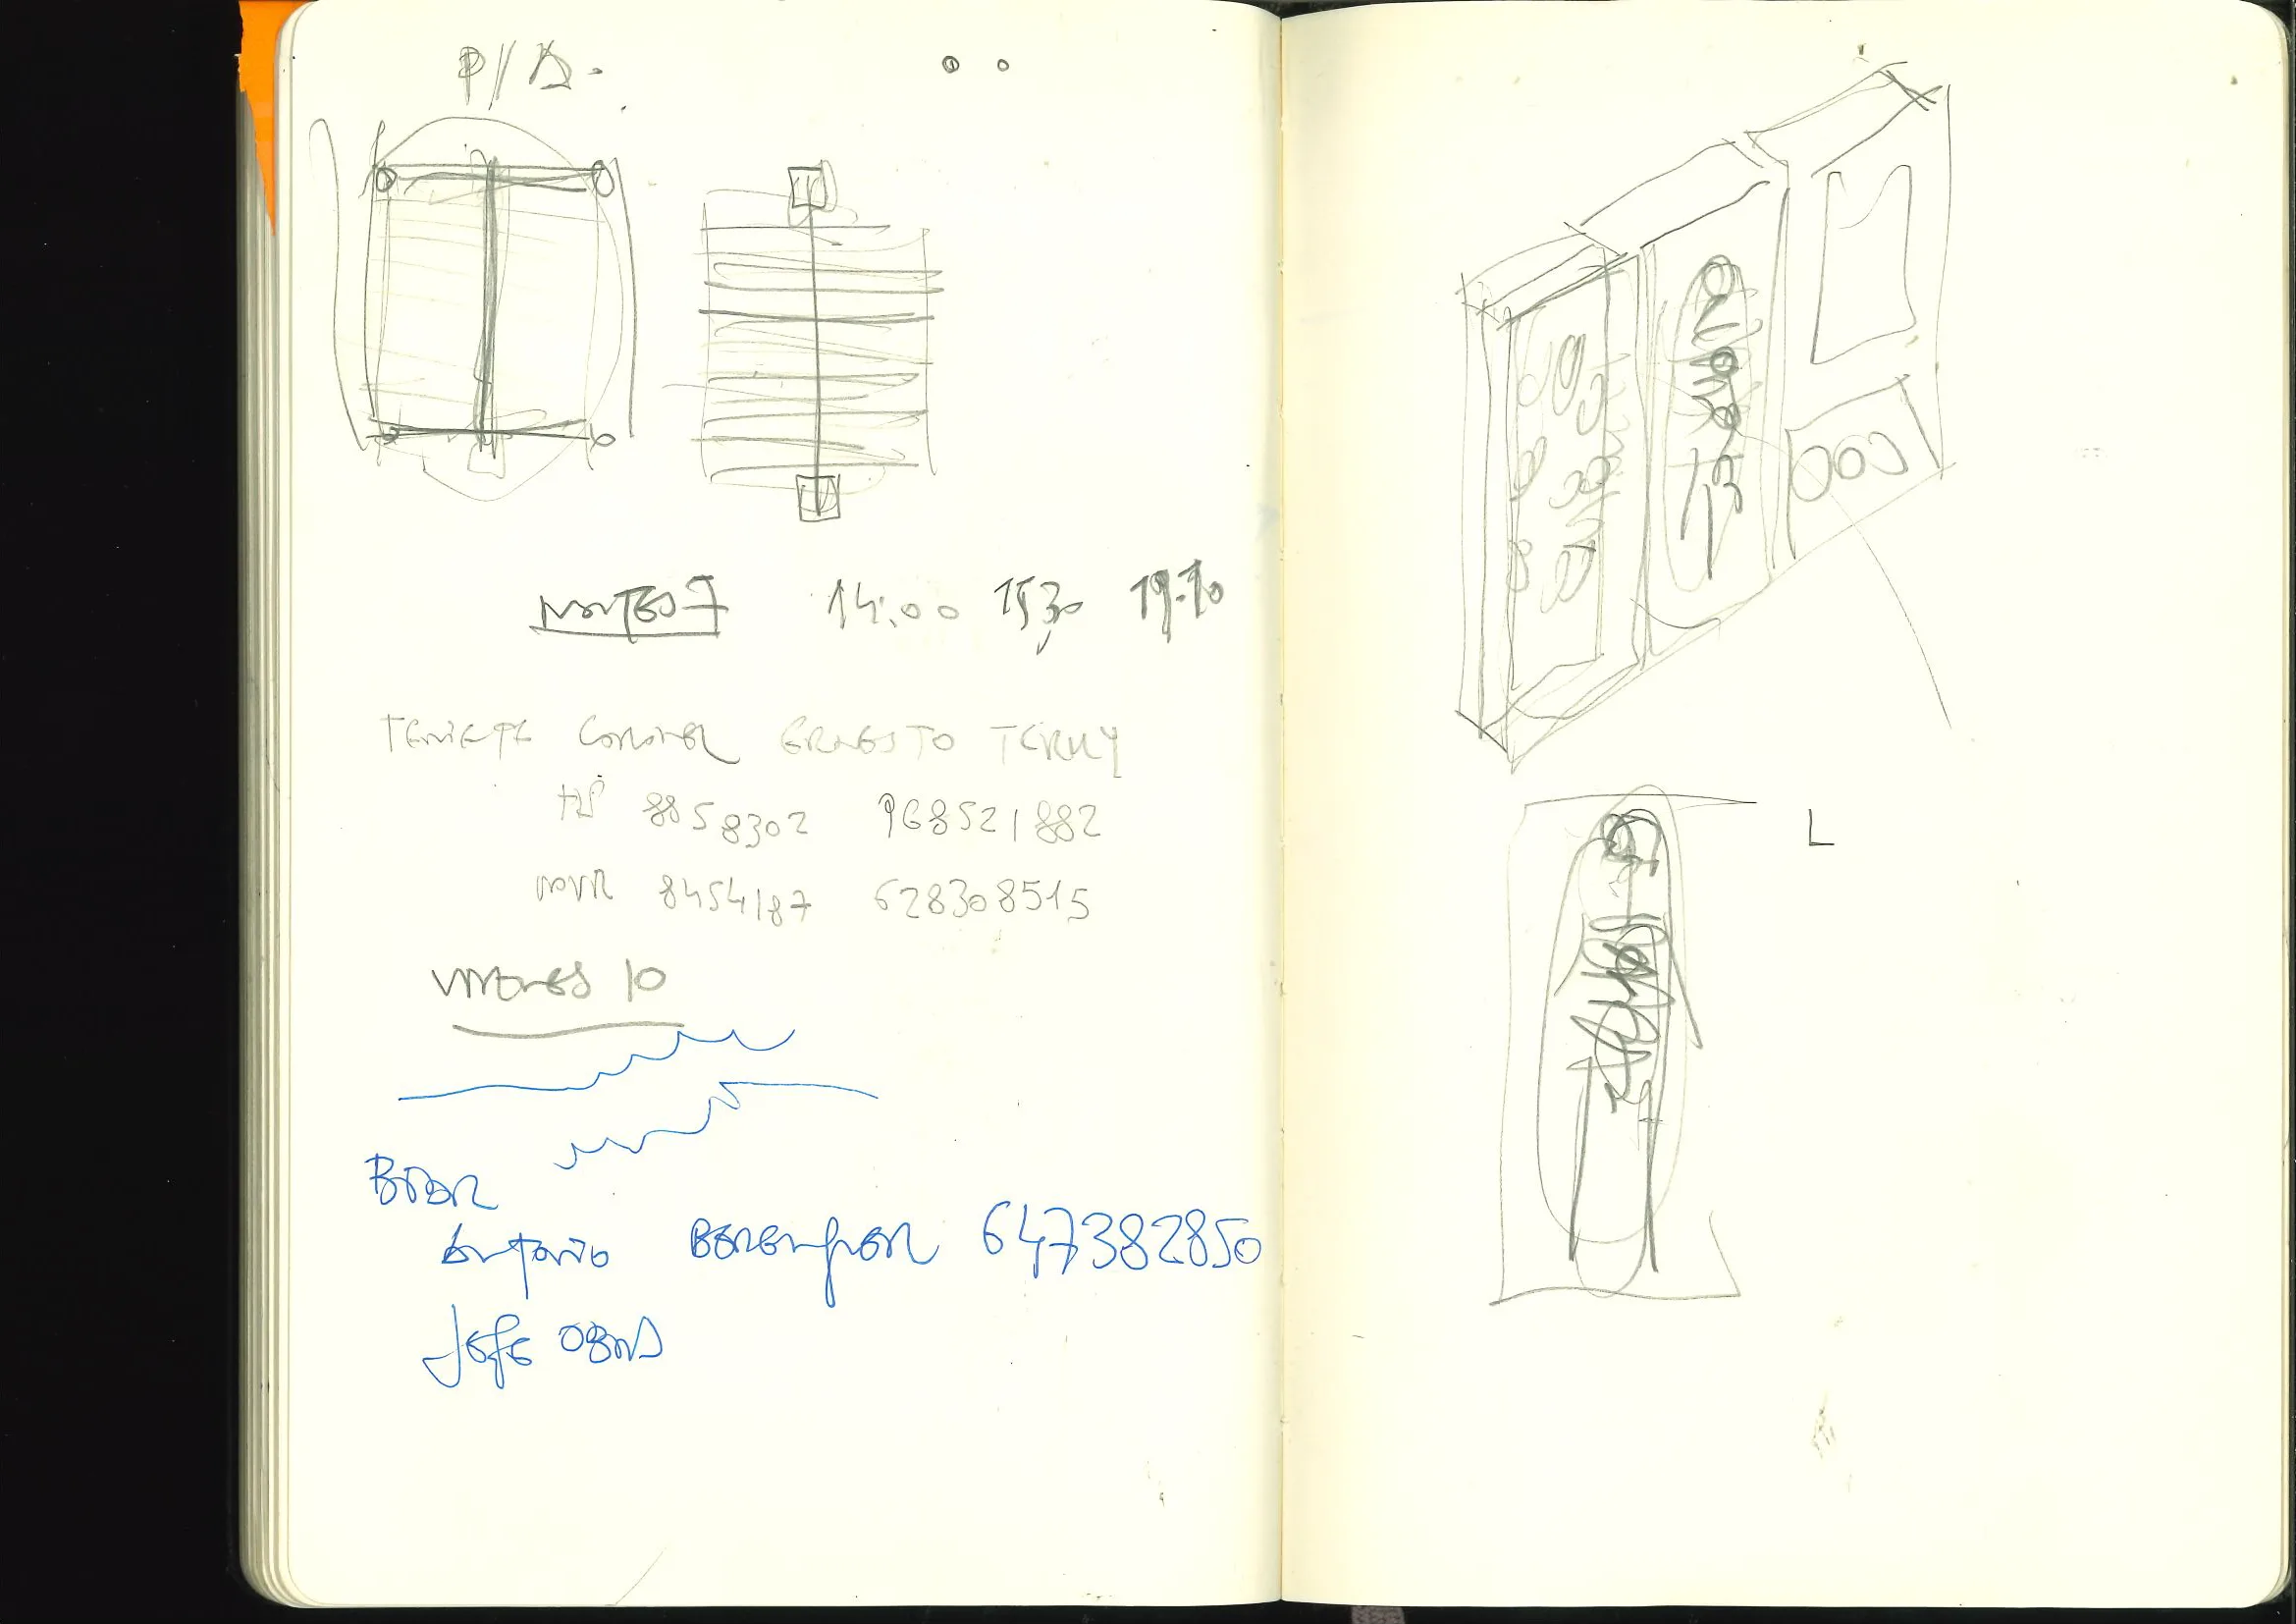 MARTES 7 14:00 15,30 19:10
TENIENTE CORONEL ERNESTO TERUY
TLF 8858302 968521882
MVR 8454187 628308515
VIERNES 10
Antonio BERENGUER 647382850
JEFE OBRA
L